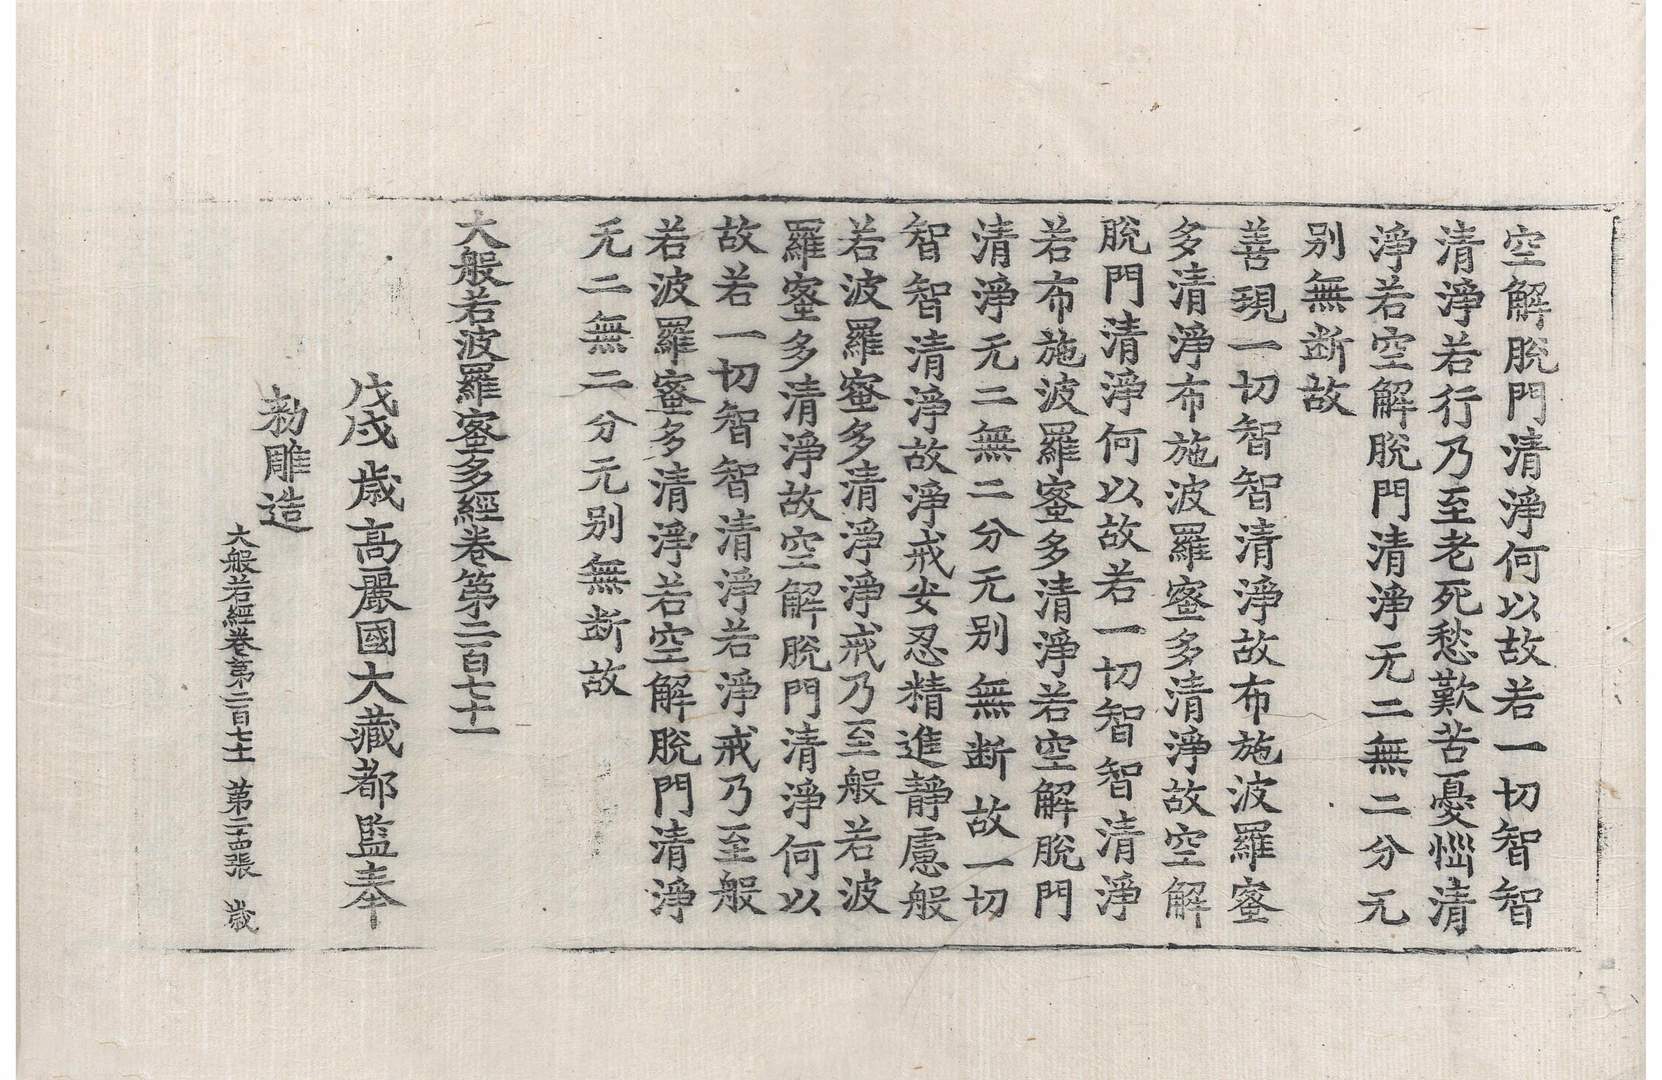 空解脫門清淨何以故若一切智智
清淨若行乃至老死愁歎苦憂惱清
淨若空解脫門清淨无二無二分无
別無斷故
善現一切智智清淨故布施波羅蜜
多清淨布施波羅蜜多清淨故空解
脫門清淨何以故若一切智智清淨
若布施波羅蜜多清淨若空解脫門
清淨无二無二分无別無斷故一切
智智清淨故淨戒安忍精進靜慮般
若波羅蜜多清淨淨戒乃至般若波
羅蜜多清淨故空解脫門清淨何以
故若一切智智清淨若淨戒乃至般
若波羅蜜多清淨若空解脫門清淨
无二無二分无別無斷故
大般若波羅蜜多經卷第二百七十一
戊戌歲高麗國大藏都監奉
勅雕造
大般若經卷第二百七十一 第二十四張 歲